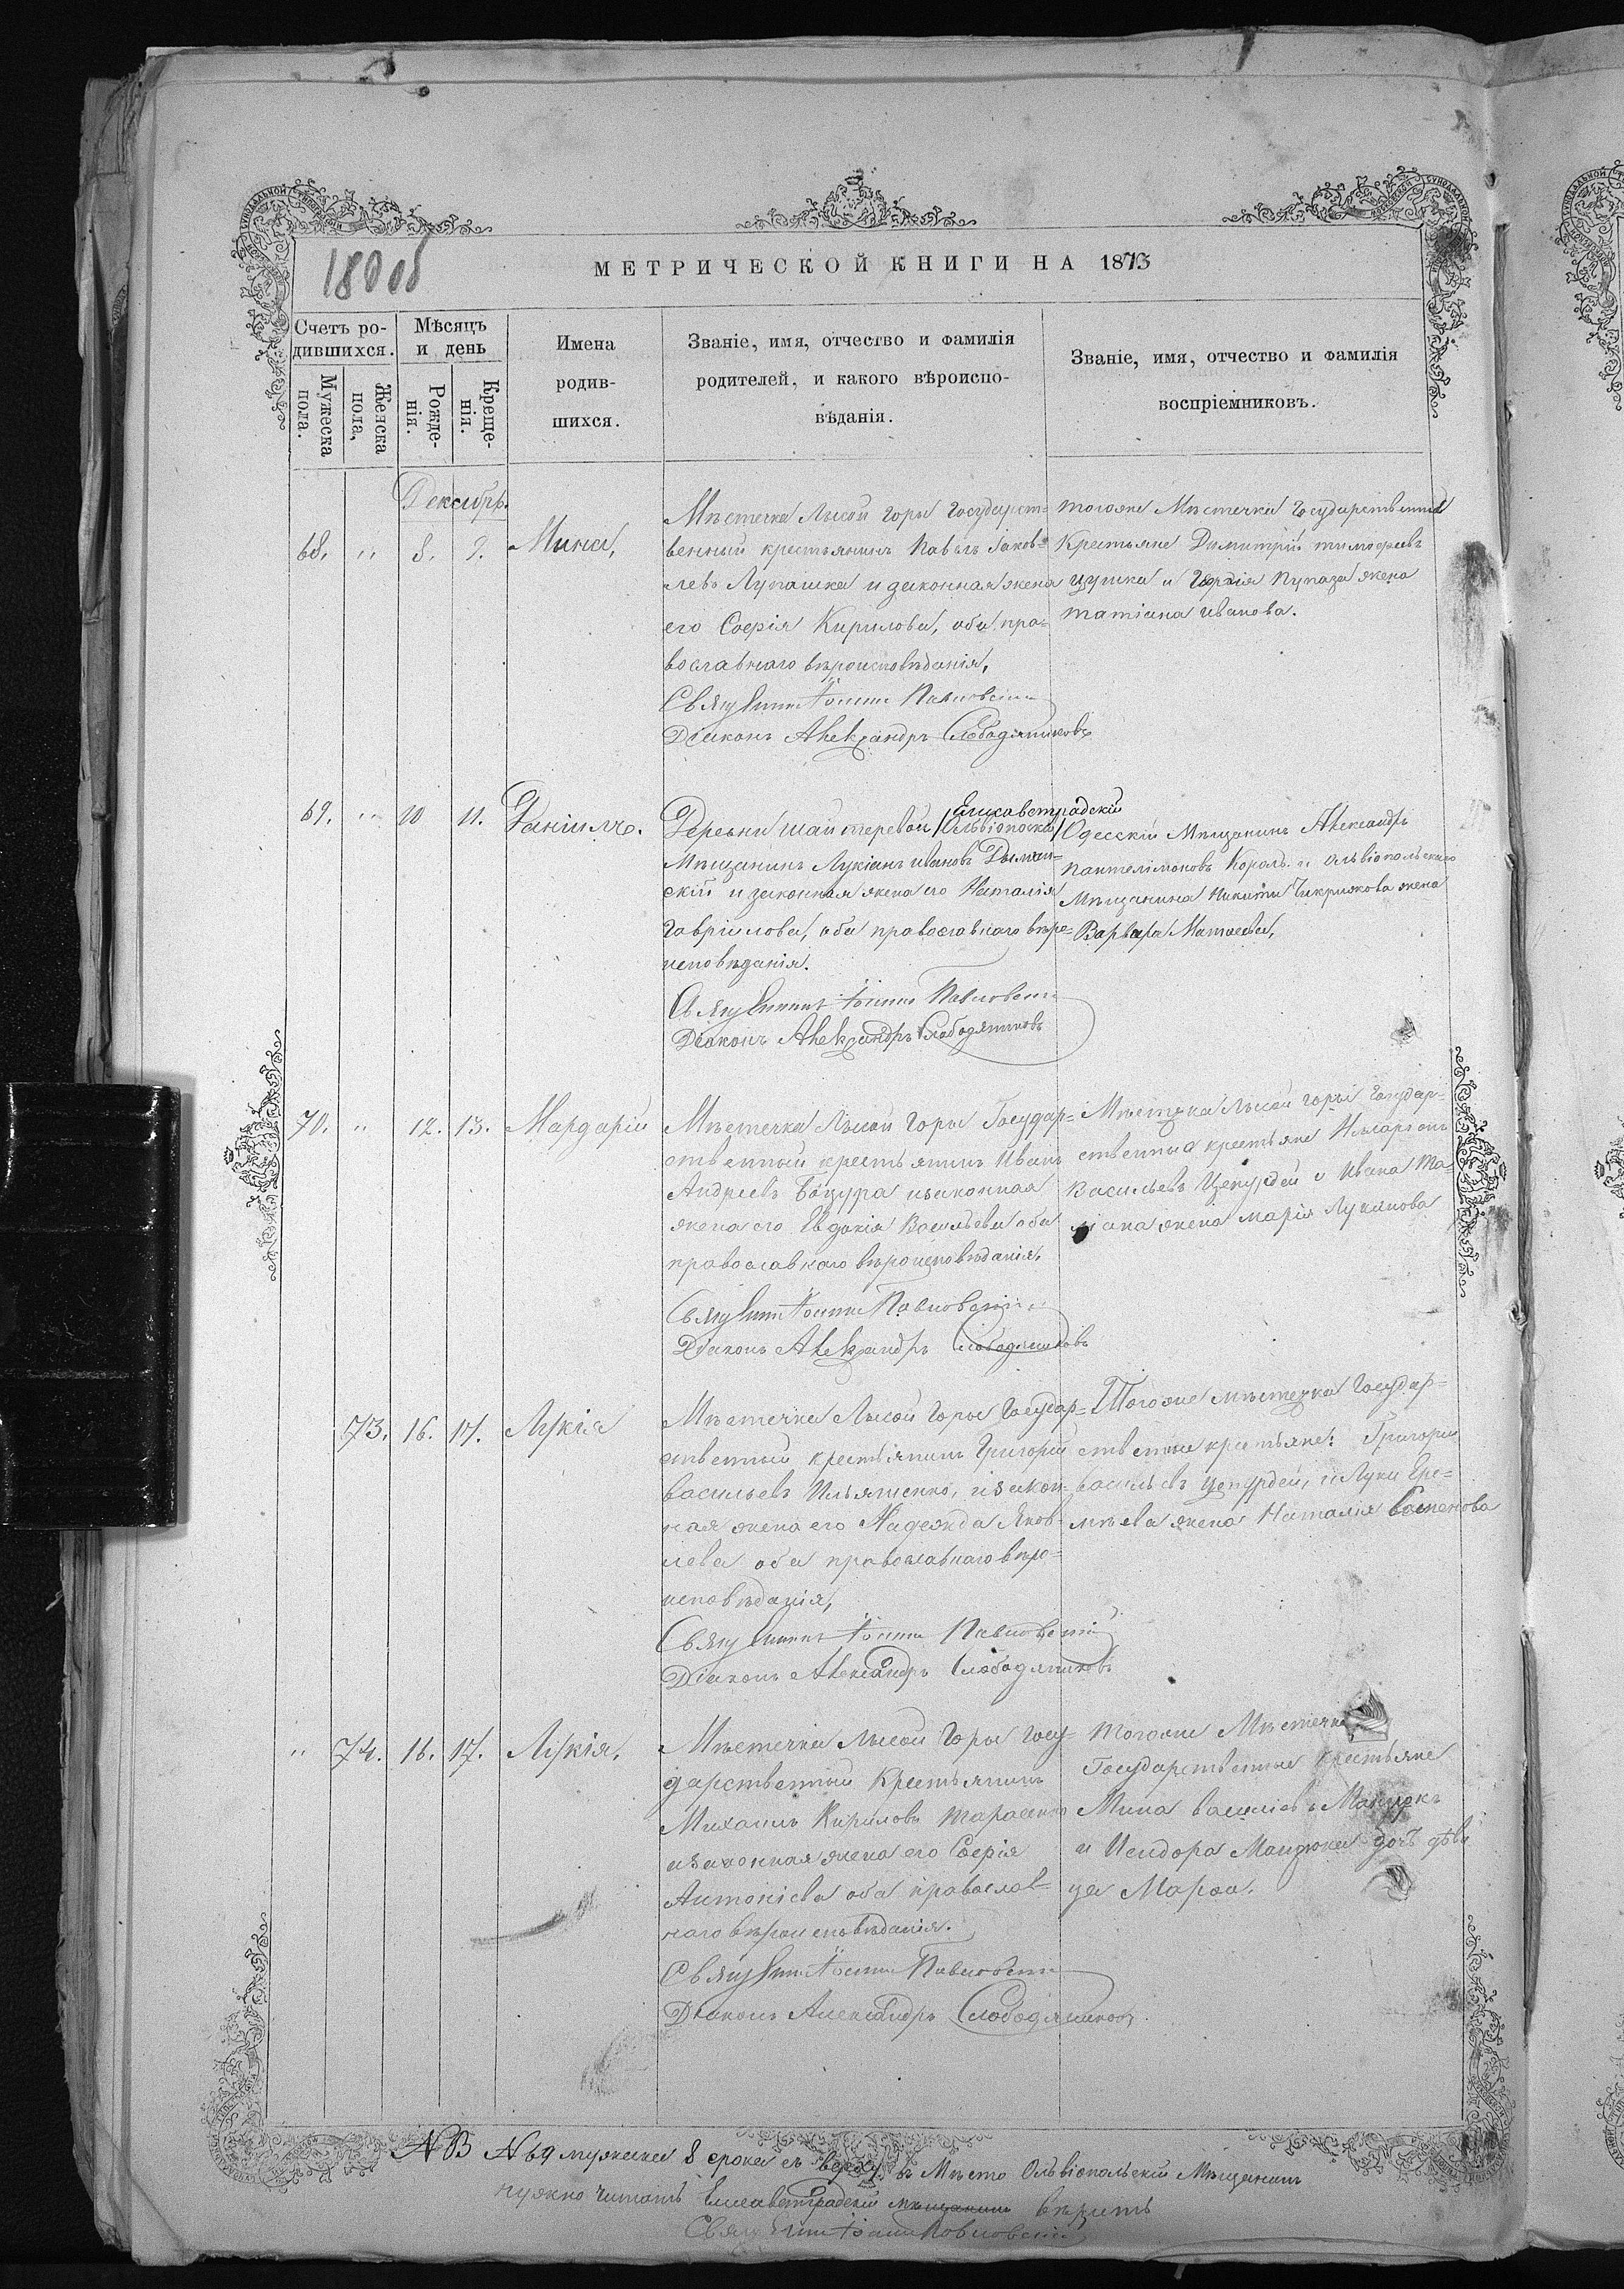 180 об
МЕТРИЧЕСКОЙ КНИГИ НА 1873
Счетъ ро-
дившихся.
Мужеска
пола.
Женска
пола,
Мѣсяцъ
и день
Рожде-
нія.
Креще-
нія.
Имена
родив-
шихся.
Званіе, имя, отчество и фамилія
родителей, и какого вѣроиспо-
вѣданія.
Званіе, имя, отчество и фамилія
воспріемниковъ.
Декабрь.
68. " 8. 9. Мина,
Мѣстечка Лысой горы Государст-
венный крестьянинъ Павелъ Іаков-
левъ Лупашка и законная жена
его Софія Кирилова, оба пра-
вославнаго вѣроисповѣданія,
Священникъ Іоаннъ Павловскій
Діаконъ Александръ Слободяниковъ
тогоже Мѣстечка Государственные
Крестьяне Димитрій тимофеевъ
и жена
татіана иванова.
69. " 10 11. Даніилъ.
Елисаветградскій
Деревни /Ольвіопольс/
Мѣщанинъ Лукіанъ ивановъ
скій и законная жена его Наталія
Гавріилова, оба православнаго вѣро-
исповѣданія.
Священникъ Іоаннъ Павловскій
Діаконъ Александръ Слободяниковъ
Одесскій Мѣщанинъ Александръ
Пантелімоновъ Король и Ольвіопольскаго
Мѣщанина Никиты жена
Варвара Матвеева,
70. " 12. 13. Мардарій
Мѣстечка Лысой Горы Государ-
ственный крестьянинъ Иванъ
Андреевъ и законная
жена его Евдокія Васильева оба
православнаго вѣроисповѣданія,
Священникъ Іоаннъ Павловскій
Діаконъ Александръ Слободяниковъ
Мѣстечка Лысой горы Государ-
ственные крестьяне Иларіонъ
Васильевъ Цепурдей и Ивана
жена марія Лукинова
73. 16. 17. Лукія
Мѣстечка Лысой Горы Государ-
ственный крестьянинъ Григорій
васильевъ Ильяшенко, и закон-
ная жена его Надежда Яков-
лева оба православнаго вѣро-
исповѣданія,
Священникъ Іоаннъ Павловскій
Діаконъ Александръ Слободяниковъ
Тогоже мѣстечка Государ-
ственные крестьяне: Григорій
васильевъ Цепурдей, и Луки Ере-
мѣева жена Наталія
" 74. 16. 17. Лукія,
Мѣстечка Лысой Горы Госу-
дарственный Крестьянинъ
Михаилъ Кириловъ тарасенко
и законная жена его Софія
Антоніева оба православ-
наго вѣроисповѣданія.
Священникъ Іоаннъ Павловскій
Діаконъ Александръ Слободяниковъ
тогоже Мѣстечка
Государственные Крестьяне
Мина васильевъ
и Исидора дочь дѣви
ца Марфа.
NB № 69 мужеска 8 срока съ верху въ Мѣсто Ольвіопольскій Мѣщанинъ
нужно читать Елисаветградскій мѣщанинъ вѣрить
Священникъ Іоаннъ Павловскій